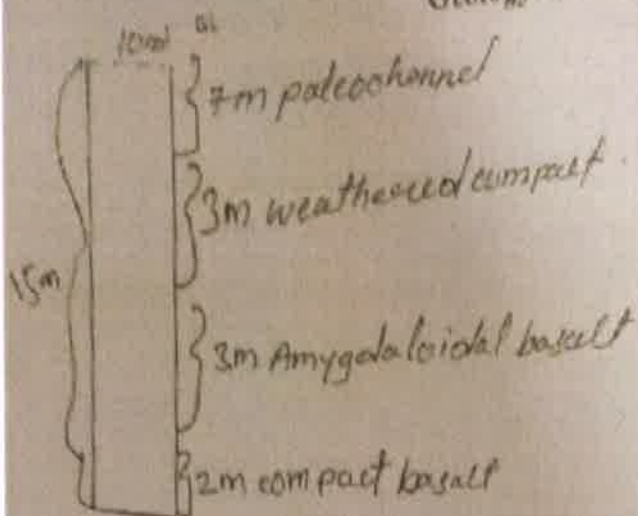 GL
7m paleochannel
3m weathered compact
15m
3m Amygdaloidal basalt
2m compact basalt